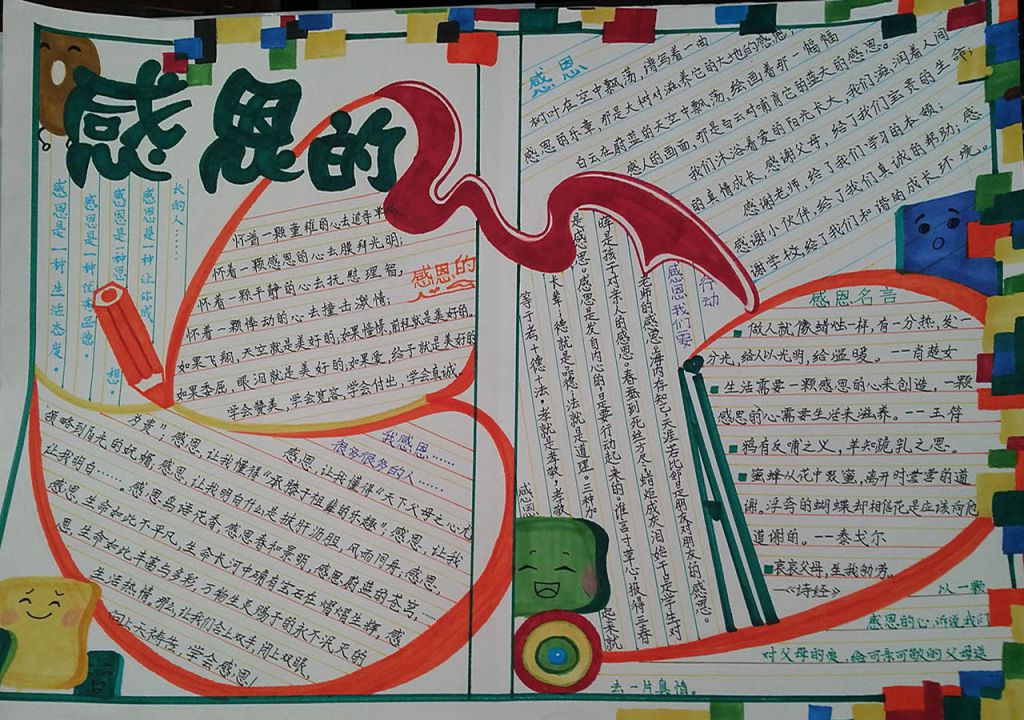 感恩的
大雷人……
怀着一颗重雄的心去追寻
怀着一颗感恩的心去膜拜光明;
怀着一颗平静的心去抚慰理智,
怀着一颗悸动的心去撞击激情,
如果飞翔,天空就是美好的;如果憧憬,前程就是美好的,
如果委屈,眼泪就是美好的;如果爱,给予就是美好的
学会赞美,学会宽容,学会付出,学会真诚
感恩的
心
我感恩……
很多很多的人……
为贵";感恩,让我懂得"天下父母之心尤
领略到阳光的妩媚,感恩,让我懂得"承膝子祖辈的乐趣"感恩,让我
让我明白……。感恩,让我明白什么是披肝沥胆,风雨同舟;感恩,
感恩鸟语花香,感恩春和景明,感恩蔚蓝的苍穹,……
恩,生命如此不平凡,生命长河中确有宝石在熠熠生辉,感
生命如此丰富与多彩,万物生灵赐于的永不泯灭的
生活热情。那么让我们合上双手,闭上双眼,
向上天祷告,学会感恩!
感恩
树叶在空中飘荡,谱写着一曲
感恩的乐章,那是大树对滋养它的大地的感恩;
白云在蔚蓝的天空中飘荡,绘画着那一幅幅
感人的画面,那是白云对哺育它的蓝天的感恩。
我们沐浴着爱的阳光长大,我们滋润着人间
的真情成长,感谢父母,给了我们宝贵的生命;
感谢老师,给了我们学习的本领;
感谢小伙伴,给了我们真诚的帮助;感
谢学校,给了我们和谐的成长环境。
感恩我们要
行动
老师的感恩;海内存知己,天涯若比邻是朋友对朋友的感恩。
晖是孩子对亲人的感恩。春蚕到死丝方尽,蜡炬成灰泪始干是学生对
是感恩。感恩是发自内心的,是要行动起来的。谁言寸草心,报得三春
长辈;德就是品德;法就是道理。三种加
起来就
等于孝+德+法。孝就是孝敬,孝敬
感恩
感恩名言
做人就像蜡烛一样,有一分热,发一
分光,给人以光明,给温暖。--肖楚女
生活需要一颗感恩的心来创造,一颗
感恩的心需要生活来滋养。--王符
鸦有反哺之义,羊知跪乳之恩。
蜜蜂从花中啜蜜,离开时营营的道
谢,浮夸的蝴蝶却相信花是应该向他
道谢的。--泰戈尔
哀哀父母,生我劬劳。
—《诗经》
以一颗
感恩的心,诉说我们
对父母的爱,给可亲可敬的父母送
去一片真情。